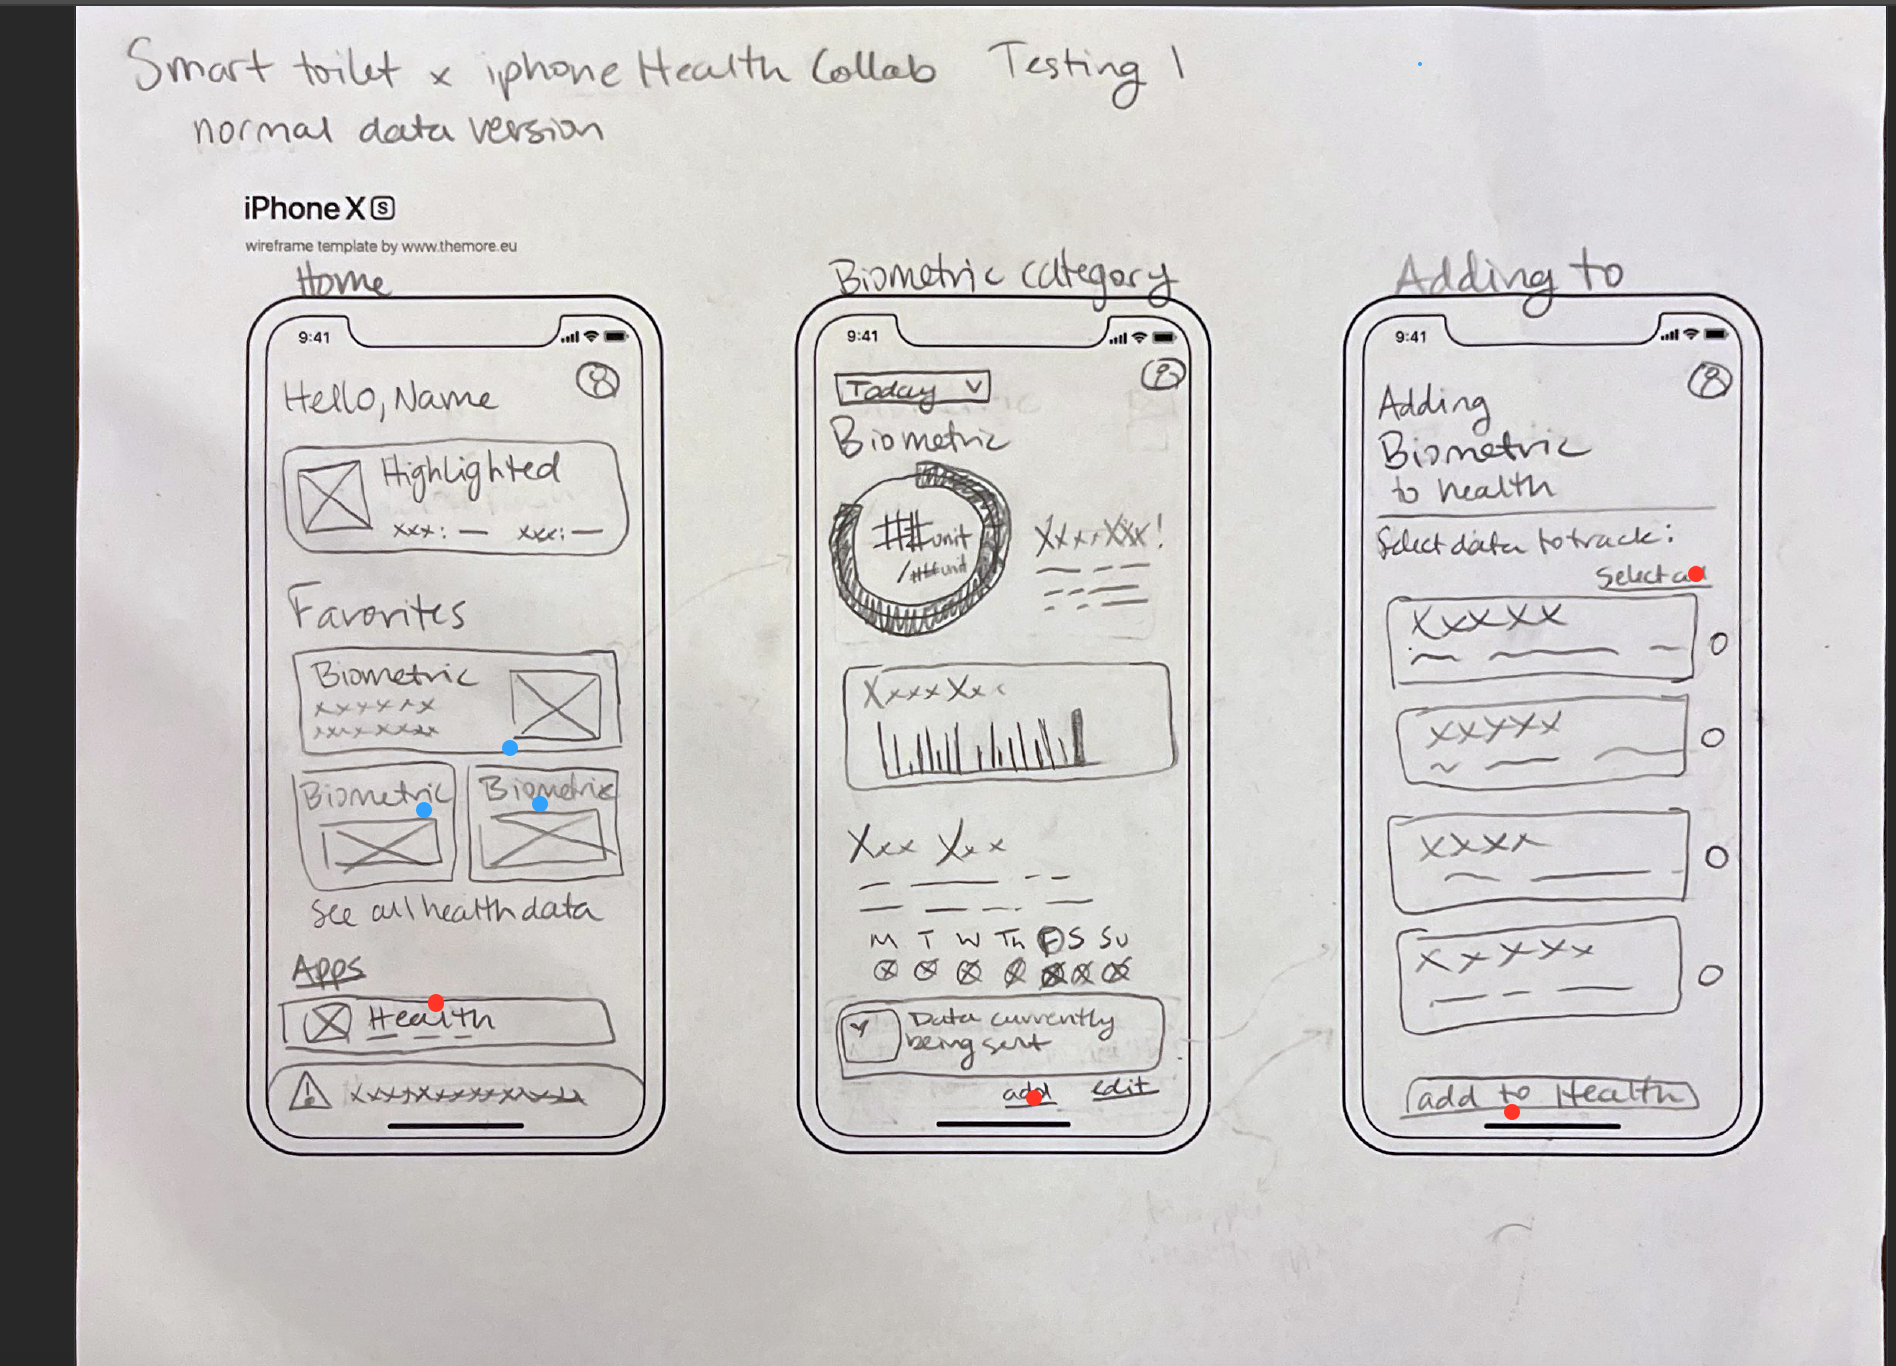 Smart toilet x iphone Health Collab Testing 1
normal data version
iPhone X S
wireframe template by www.themore.eu
Home
9:41
Hello, Name
Highlighted
xxx: — xxx: —
Favorites
Biometric
xxxxxxx
Biometric Biometric
See all health data
Apps
Health
Biometric category
9:41
Today
Biometric
##unit
/##unit
XxxxXxx!
XxxxXxx
Xxx Xxx
M T W Th F S Su
Data currently
being sent
add edit
Adding to
9:41
Adding
Biometric
to health
Select data to track:
Select all
Xxxxx
xxxxx
xxxx
xxxxx
add to Health